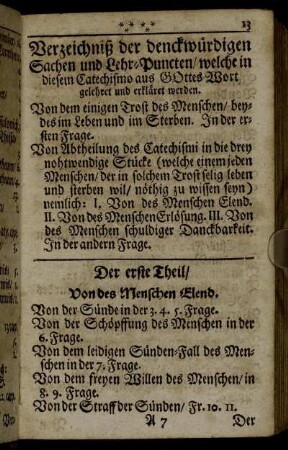 * * * *
13
Verzeichniß der denckwürdigen
Sachen und Lehr-Puncten/ welche in
diesem Catechismo aus GOttes Wort
gelehret und erkläret werden.
Von dem einigen Trost des Menschen/ bey-
des im Leben und im Sterben. In der er-
sten Frage.
Von Abtheilung des Catechismi in die drey
nohtwendige Stücke (welche einem jeden
Menschen/ der in solchem Trost selig leben
und sterben wil/ nöthig zu wissen seyn)
nemlich: I. Von des Menschen Elend.
II. Von des Menschen Erlösung. III. Von
des Menschen schuldiger Danckbarkeit.
In der andern Frage.
Der erste Theil/
Von des Menschen Elend.
Von der Sünde in der 3. 4. 5. Frage.
Von der Schöpffung des Menschen in der
6. Frage.
Von dem leidigen Sünden-Fall des Men-
schen in der 7. Frage.
Von dem freyen Willen des Menschen/ in
8. 9. Frage.
Von der Straff der Sünden/ Fr. 10. 11.
A 7 Der